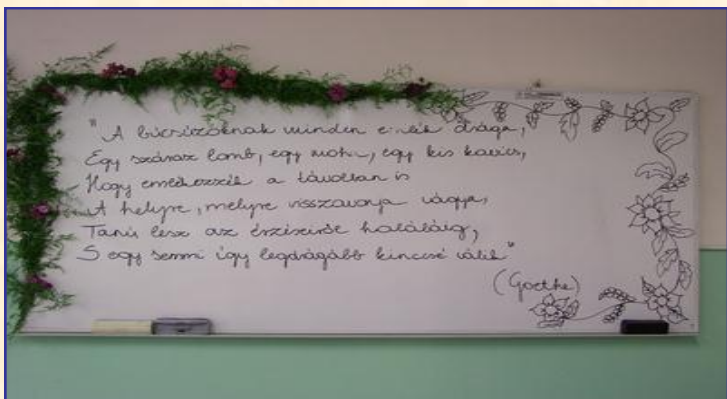 "A búcsúzóknak minden emlék drága,
Egy száraz lomb, egy moha, egy kis kavics,
Hogy emlékezzék a távolban is
A helyre, melyre visszavonja vágya,
Tanú lesz az érzéseiről haláláig,
S egy semmi így legdrágább kinccsé válik"
(Goethe)